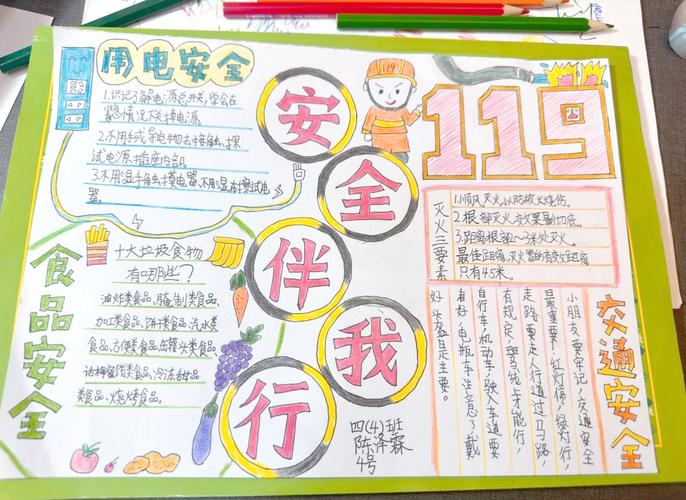 用电安全
1.识记了解电源总开关,学会在
紧急情况下关掉电源
2.不用手或导电物去接触、探
试电源插座内部。
3.不用湿手触摸电器,不用湿布擦拭电
器。
安全伴我行
119
灭火三要素
1.顺风灭火,以防被火烧伤。
2.根部灭火,方效果最彻底。
3.距离根部2~3米处灭火。
最佳距离,灭火器的有效距离
只有4.5米。
食品安全
十大垃圾食物
有哪些?
油炸类食品、腌制类食品、
加工类食品、饼干类食品、汽水类
食品、方便类食品、罐头类食品、
话梅蜜饯类食品、冷冻甜品
类食品、烧烤食品。
交通安全
小朋友要牢记,交通安全
最重要,红灯停,绿灯行,
走路要走人行道,过马路,
有规定,斑马线上才能行,
自行车,机动车,驶入车道要
看好,电瓶车,注意了,戴
好头盔是主要。
四(4)班
陈泽霖
4号